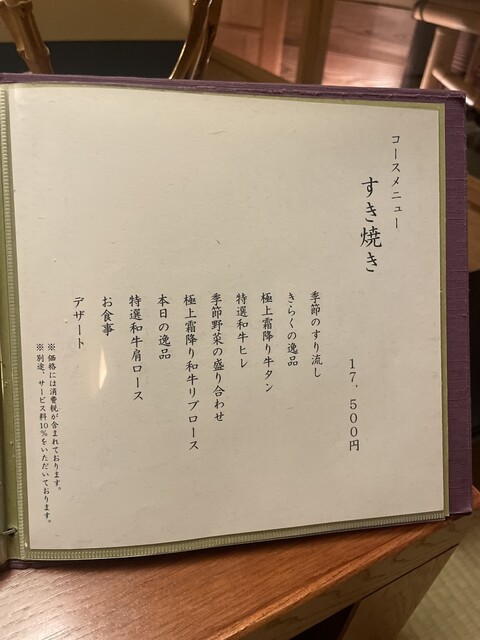 コースメニュー
すき焼き
17,500円
季節のすり流し
きらくの逸品
極上霜降り牛タン
特選和牛ヒレ
季節野菜の盛り合わせ
極上霜降り和牛リブロース
本日の逸品
特選和牛肩ロース
お食事
デザート
※価格には消費税が含まれております。
※別途、サービス料10%をいただいております。